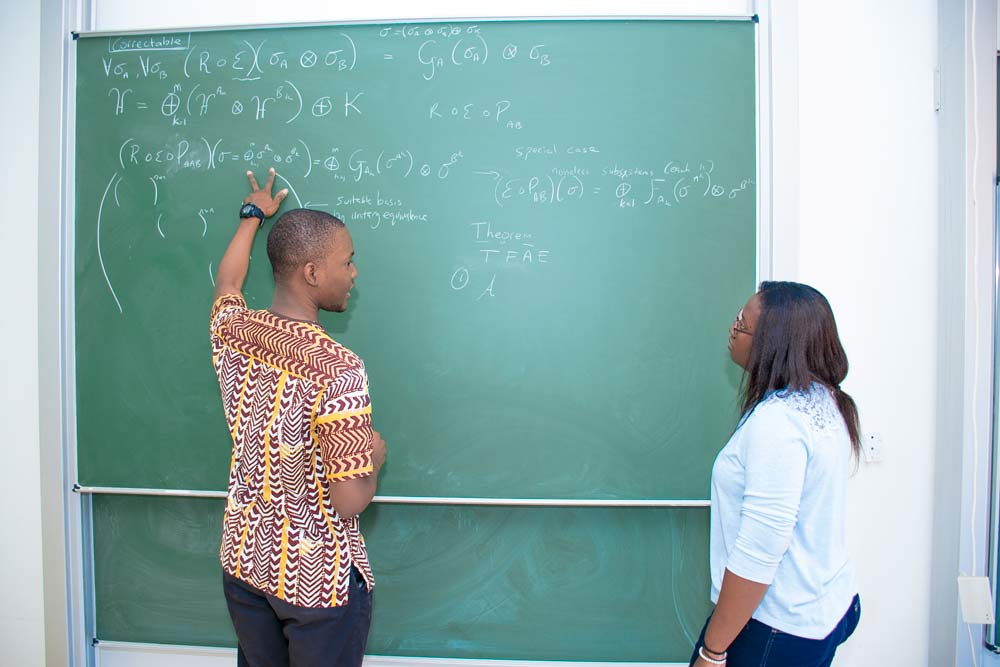 Correctable
σ = (σ_A ⊗ σ_B) ⊕ σ_K
∀σ_A, ∀σ_B (R∘Ɛ)(σ_A ⊗ σ_B) = G_A(σ_A) ⊗ σ_B
H = ⊕_{k=1}^m (H^{A_k} ⊗ H^{B_k}) ⊕ K
R∘Ɛ∘P_{AB}
(R∘Ɛ∘P_{AB})(σ = ⊕ σ^{A_k} ⊗ σ^{B_k}) = ⊕ G_{A_k}(σ^{A_k}) ⊗ σ^{B_k}
special case
noiseless subsystems (each k)
→ (Ɛ∘P_{AB})(σ) = ⊕_{k=1} F_{A_k}(σ^{A_k}) ⊗ σ^{B_k}
← suitable basis
by unitary equivalence
Theorem
TFAE
① A